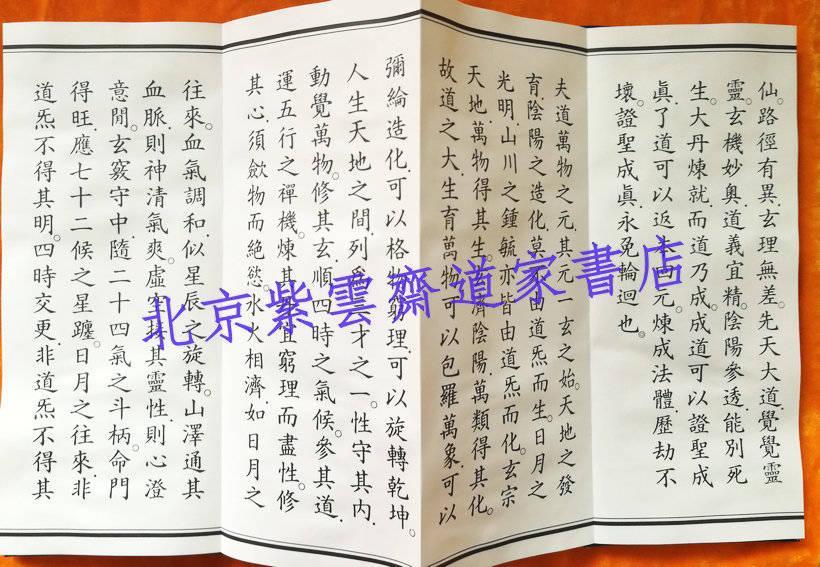 仙。路徑有異。玄理無差。先天大道。覺覺靈
靈。玄機妙奧。道義宜精。陰陽參透。能別死
生。大丹煉就。而道乃成。成道可以證聖成
眞。了道可以返本回元。煉成法體。歷劫不
壞。證聖成眞。永免輪迴也。
夫道萬物之元。其元一玄之始。天地之發
育。陰陽之造化。莫不由道炁而生。日月之
光明。山川之鍾毓。亦皆由道炁而化。玄宗
天地。萬物得其生。濟陰陽。萬類得其化。
故道之大。生育萬物。可以包羅萬象。可以
彌綸造化。可以格物窮理。可以旋轉乾坤。
人生天地之間。列爲三才之一。性守其內。
動覺萬物。修其玄。順四時之氣候。參其道。
運五行之禪機。煉其宜窮理而盡性。修
其心。須歛物而絶慾。水火相濟。如日月之
往來。血氣調和。似星辰之旋轉。山澤通其
血脈。則神清氣爽。虛空接其靈性。則心澄
意閒。玄竅守中。隨二十四氣之斗柄。命門
得旺。應七十二候之星躔。日月之往來。非
道炁不得其明。四時交更。非道炁不得其
北京紫雲齋道家書店